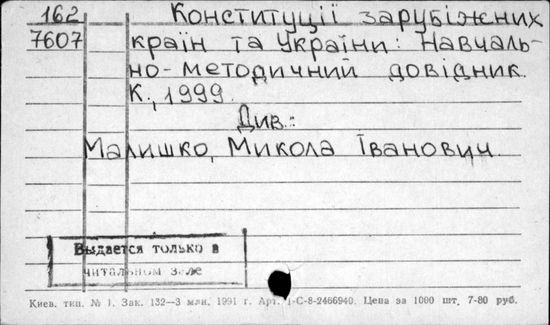 162 Конституції зарубіжних
7607 країн та України: Навчаль-
но-методичний довідник.
К., 1999.
Див.:
Малишко, Микола Іванович.
Выдается только в
читальном зале
Киев. тип. № 1. Зак. 132—3 млн. 1991 г. Арт. 1-С-8-2466940. Цена за 1000 шт. 7-80 руб.